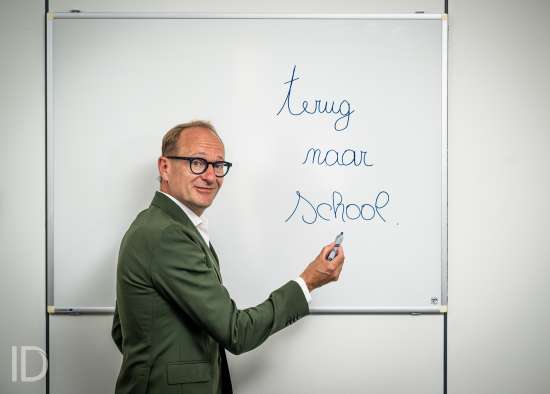 terug
naar
school.
ID